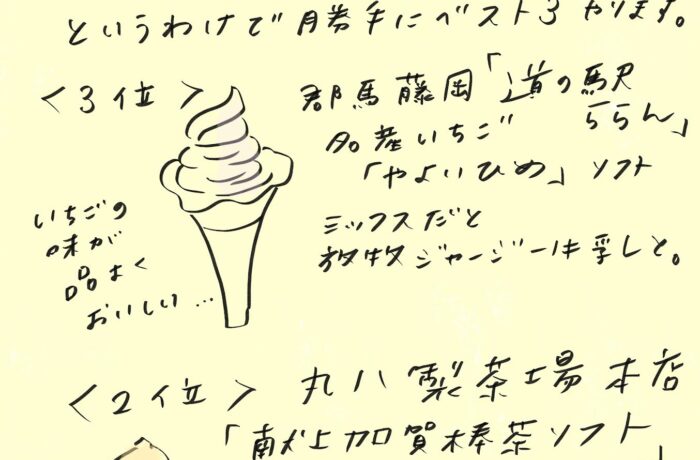 というわけで勝手にベスト3やります。
<3位>
群馬藤岡「道の駅ららん」
名産いちご
「やよいひめ」ソフト
ミックスだと
放牧ジャージー牛乳しと。
いちごの
味が
品よく
おいしい…
<2位> 丸八製茶場本店
「献上加賀棒茶ソフト」